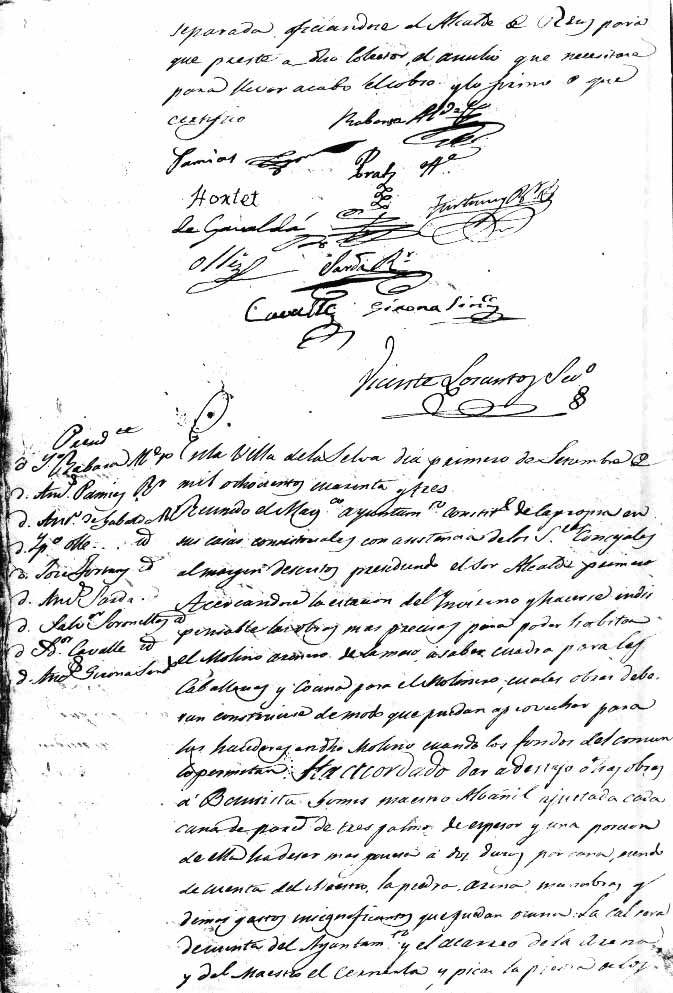 separada oficiandose al Alcalde de Reus para
que preste a dho Colector, el ausilio que necesitare
para llevar acabo el cobro y lo firmo de que
certifico
Rabasa
Pamies
Prats
Hortet
Fortuny Rr
de Gavaldá
Ollé
Sardá Rr
Cavallé Girona Sindco
Vicente Serio
Presdtes
Rabasa
d. Anto Pamies Rr
d. Anto de Gabaldá
d. Ollé id
d. José Fortuny id
d. Sardá
d. Salvr id
d. Cavallé id
d. Girona Sindo
En la Villa de la Selva dia primero de Setiembre de
mil ochocientos cuarenta y tres
Reunido el Magco ayuntamto constitl de la propia en
sus casas consistoriales con asistencia de los Sres Concejales
al margen descritos presidiendo el Sor Alcalde primero
Acercandose la estacion del Invierno y hacerse indis
pensable las obras mas precisas para poder habitar
el Molino arinero de la maso, a saber, cuadra para las
Caballerias y Cocina para el Molinero, cuales obras debe
ran construirse de modo que puedan aprovechar para
las hacederas en dho Molino cuando los fondos del comun
lo permitan. Ha acordado dar a destajo obras
á Bautista Gomis maestro Albañil ajustada cada
cana de pared de tres palmos de espesor y una porcion
de ella ha de ser mas gruesa á dos duros por cana, siendo
de cuenta del Maestro, la piedra, arena, maniobras y
demas gastos insignificantes que puedan ocurrir. La cal sera
de cuenta del Ayuntamto y el acarreo de la Arena
y del Maestro el Cernerla y picar la piedra